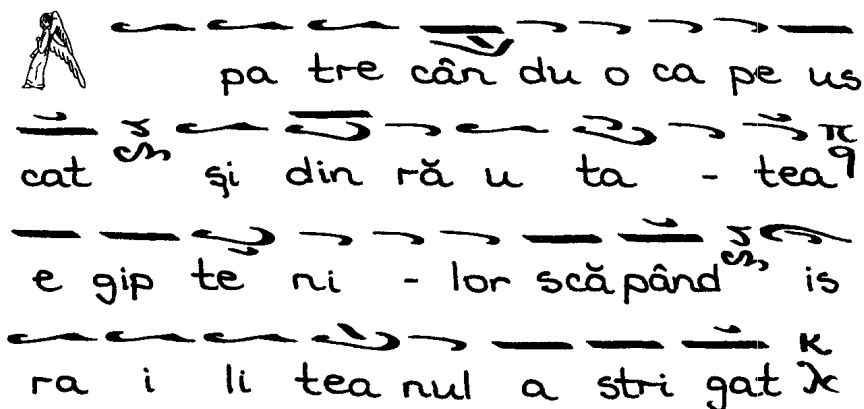 A pa tre cân du o ca pe us
cat și din ră u ta - tea
e gip te ni - lor scă pând is
ra i li tea nul a stri gat